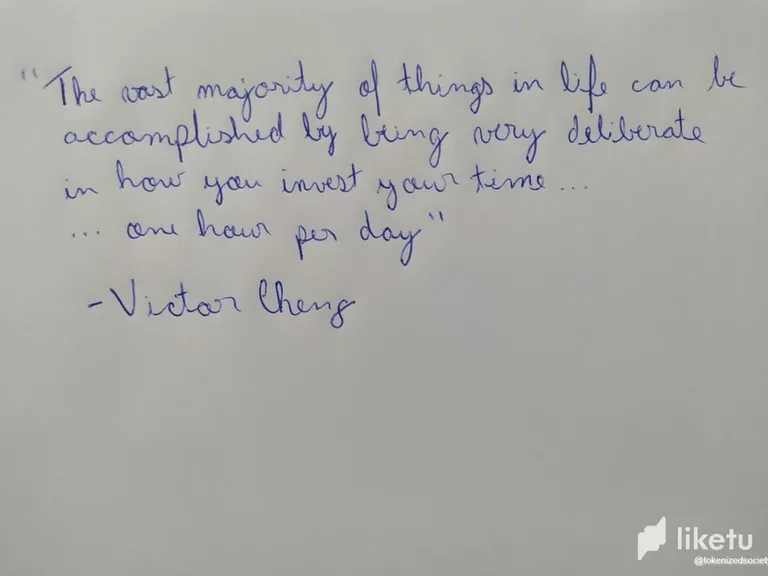 "The vast majority of things in life can be
accomplished by being very deliberate
in how you invest your time...
... one hour per day"
- Victor Cheng
liketu
@tokenizedsociety